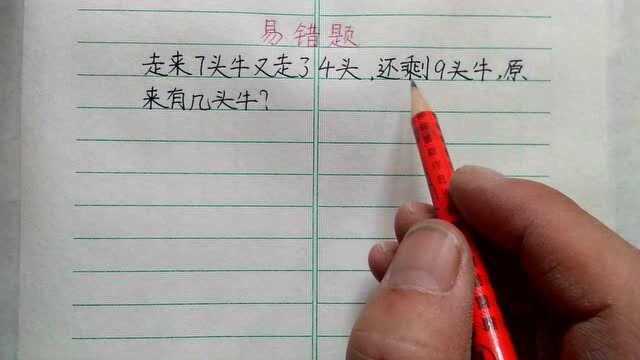 易错题
走来7头牛又走了4头,还剩9头牛,原
来有几头牛?